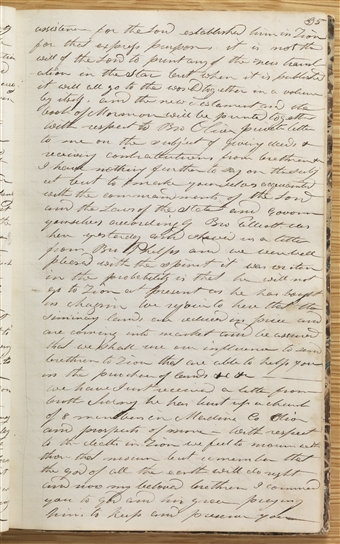 35
assistance for the Lord established him in Zion
for that express purpose it is not the
will of the Lord to print any of the new transl
ation in the Star but when it is published
it will all go to the world together in a volume
by itself and the new testament and the
book of Mormon will be printed together
with respect to Bro Oliver private letter
to me on the subject of giving deeds &
receiving contributions from brethren &c
I have nothing further to say on the subj
ect but to make yourselves acquainted
with the commandments of the Lord
and the Laws of the State and govern
yourselves accordingly Bro Elliott was
here yesterday and shared in a letter
from Bro Phelps and we were well
pleased with the spirit it was written
in the probability is that he will not
go to Zion at present as he has bought
in Chagrin We rejoice to hear that the
Seminary lands are reduced in price and
are coming into market and be assured
that we shall use our influence to send
brethren to Zion that are able to help you
in the purchase of lands &c &c
we have just received a letter from
broth Sidney he has built up a church
of 8 members in Medina Co Ohio
and prospects of more — with respect
to the deaths in Zion we feel to mourn with
those that mourn but remember that
the god of all the earth will do right
and now my beloved brethren I commend
you to God and his grace praying
him to keep and preserve you